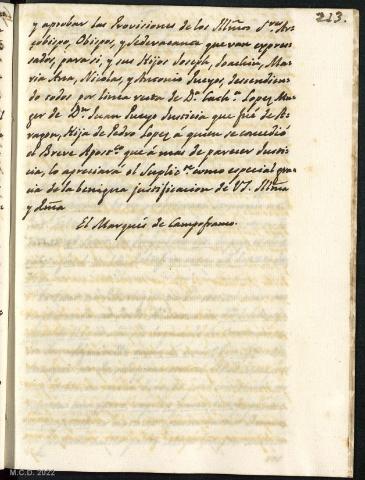 213.
y aprobar las Provisiones de los Illm̃os S.res Ar-
zobispo, Obispos, y Sedevacanca que van expre-
sados, para sí, y sus Hijos Joseph, Joachin, Ma-
ria Ana, Nicolas, y Antonio Pueyo, descendien-
do todos por linea recta de D.a Cath.a Lopez Mu-
ger de D.n Juan Pueyo Justicia que fué de A-
ragon, Hija de Pedro Lopez á quien se concedió
el Breve Apost.co que á más de parecer Justi-
cia, lo apreciará el Suplic.te como especial gra-
cia de la benigna justificacion de VS. Illm̃a
y Rm̃a
El Marqués de Campofranco.
M.C.D. 2022